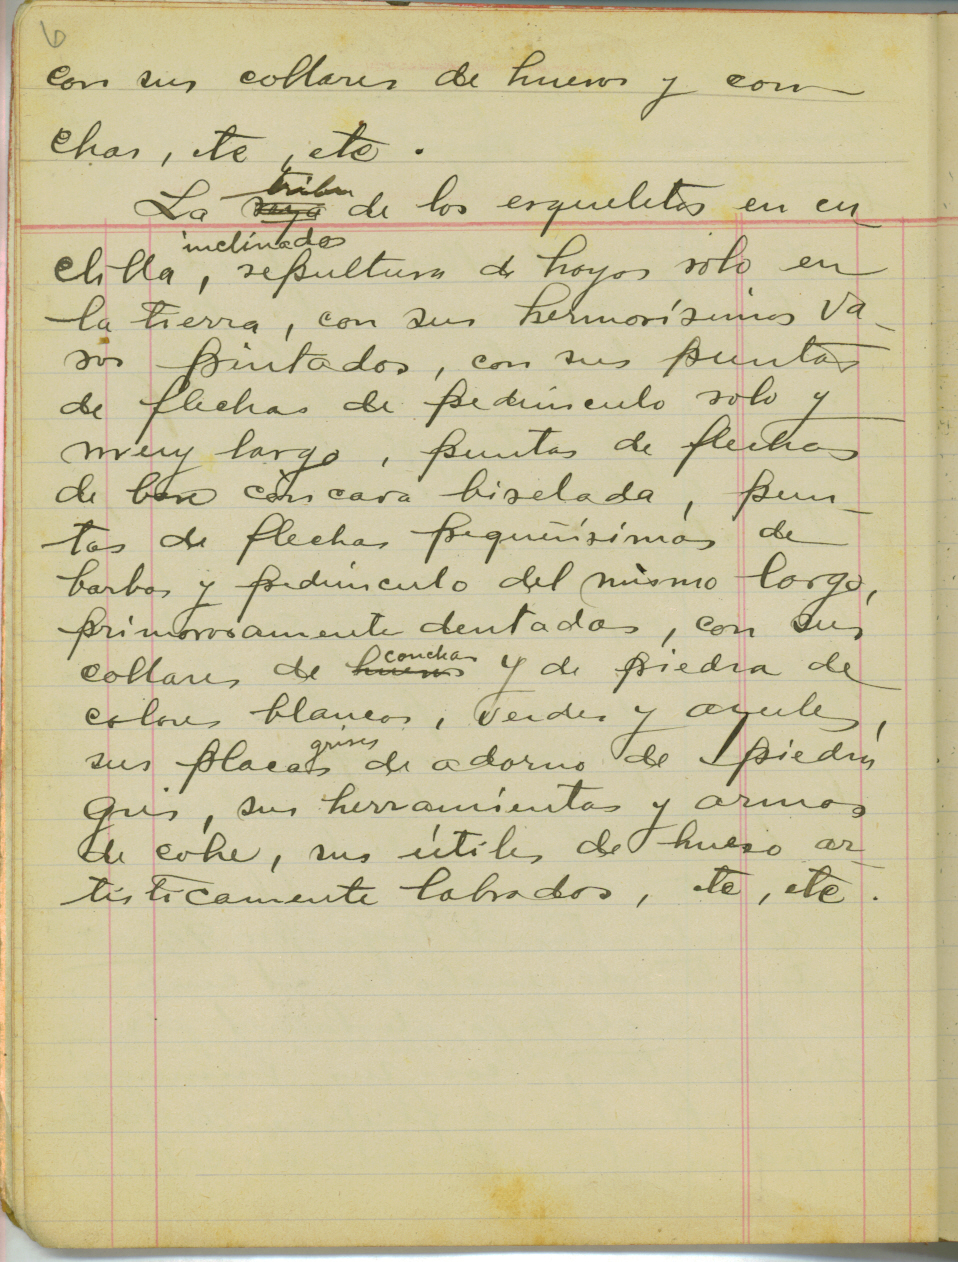 6
con sus collares de huesos y con-
chas, etc, etc.
tribu
La raza de los esqueletos en cu
inclinados
clilla, sepultura de hoyos solo en
la tierra, con sus hermosísimos va-
sos pintados, con sus puntas
de flechas de pedúnculo solo y
muy largo, puntas de flechas
de base cóncava biselada, pun-
tas de flechas pequeñísimas de
barbas y pedúnculo del mismo largo,
primorosamente dentadas, con sus
conchas
collares de huesos y de piedra de
colores blancos, verdes y azules,
grises
sus placas de adorno de piedra
gris, sus herramientas y armas
de cobre, sus útiles de hueso ar-
tísticamente labrados, etc, etc.